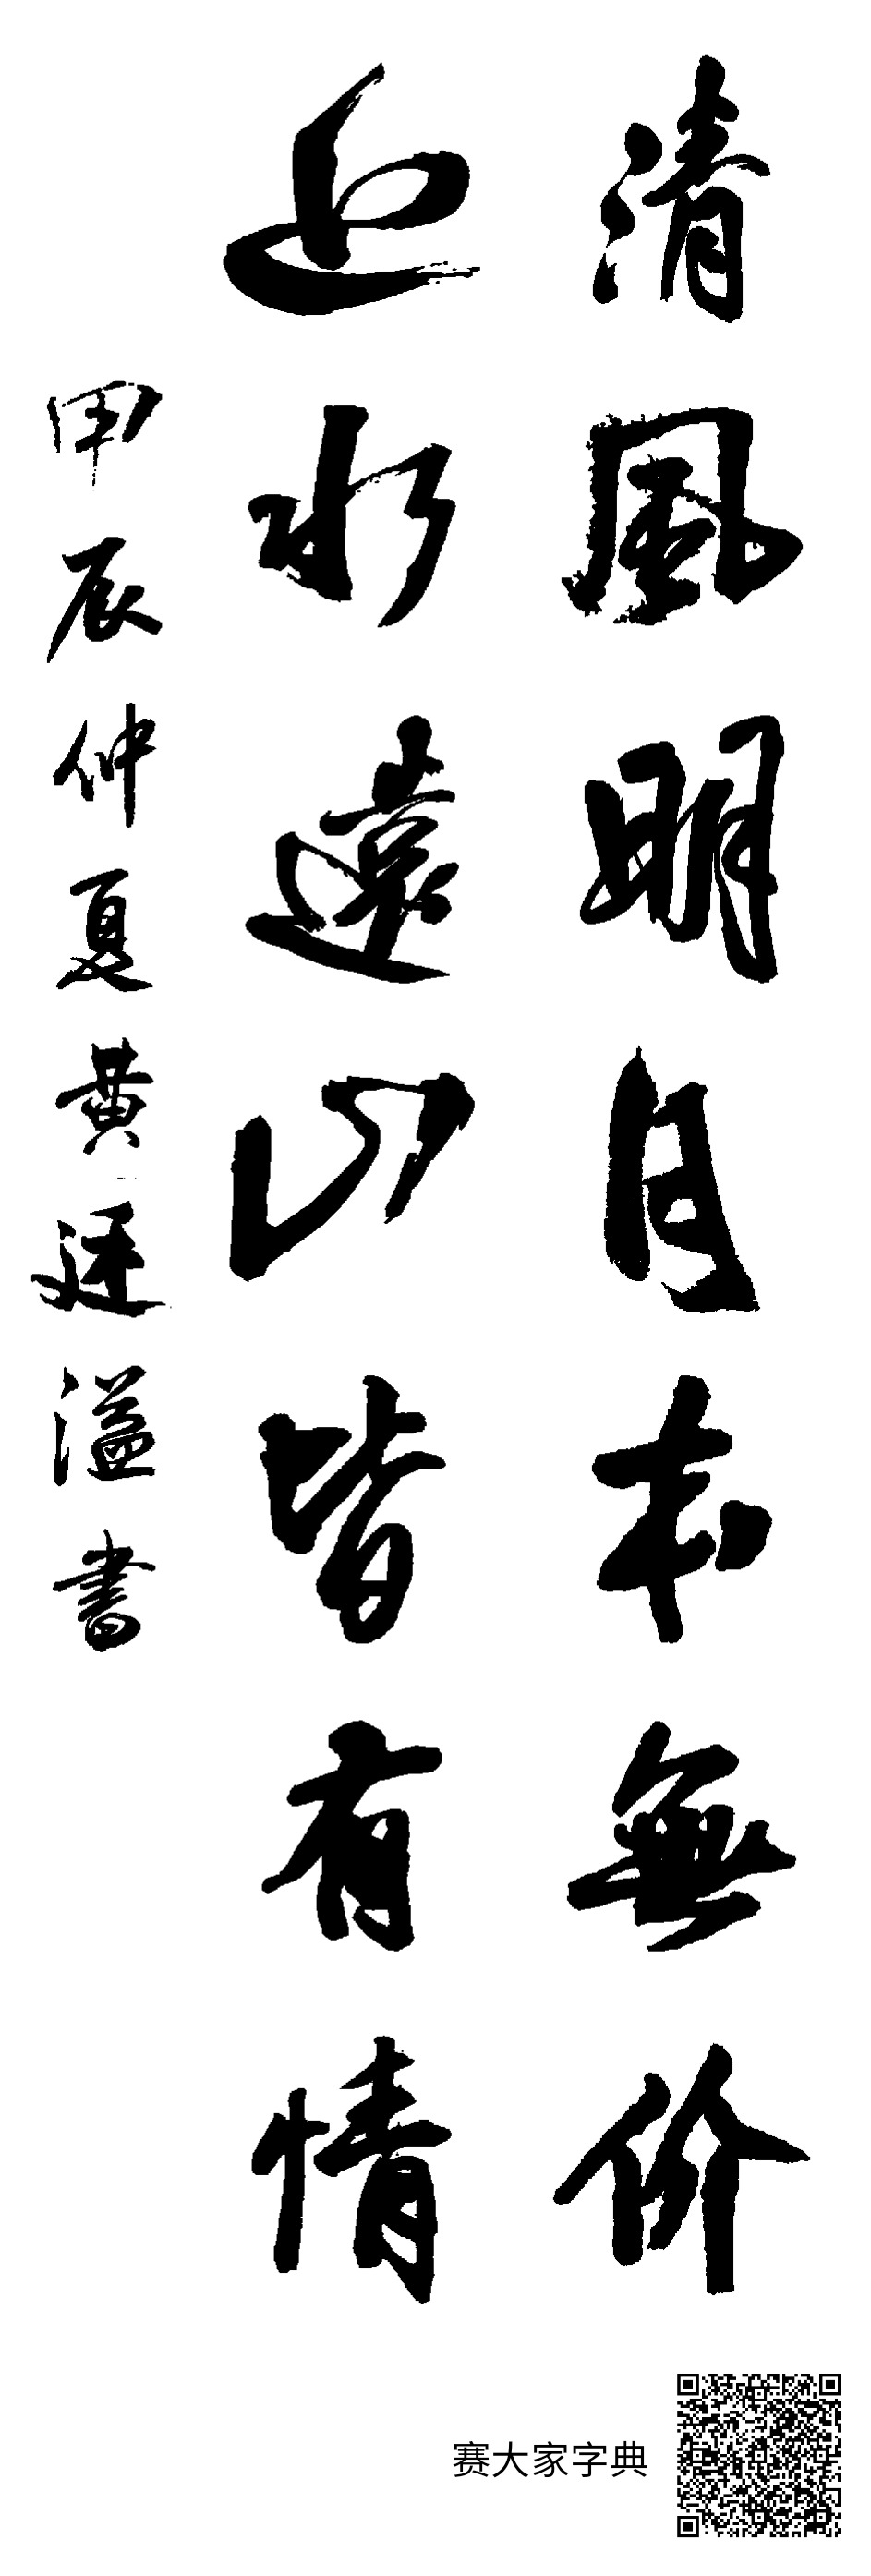 清風明月本無价
近水遠山皆有情
甲辰仲夏黄廷溢書
赛大家字典